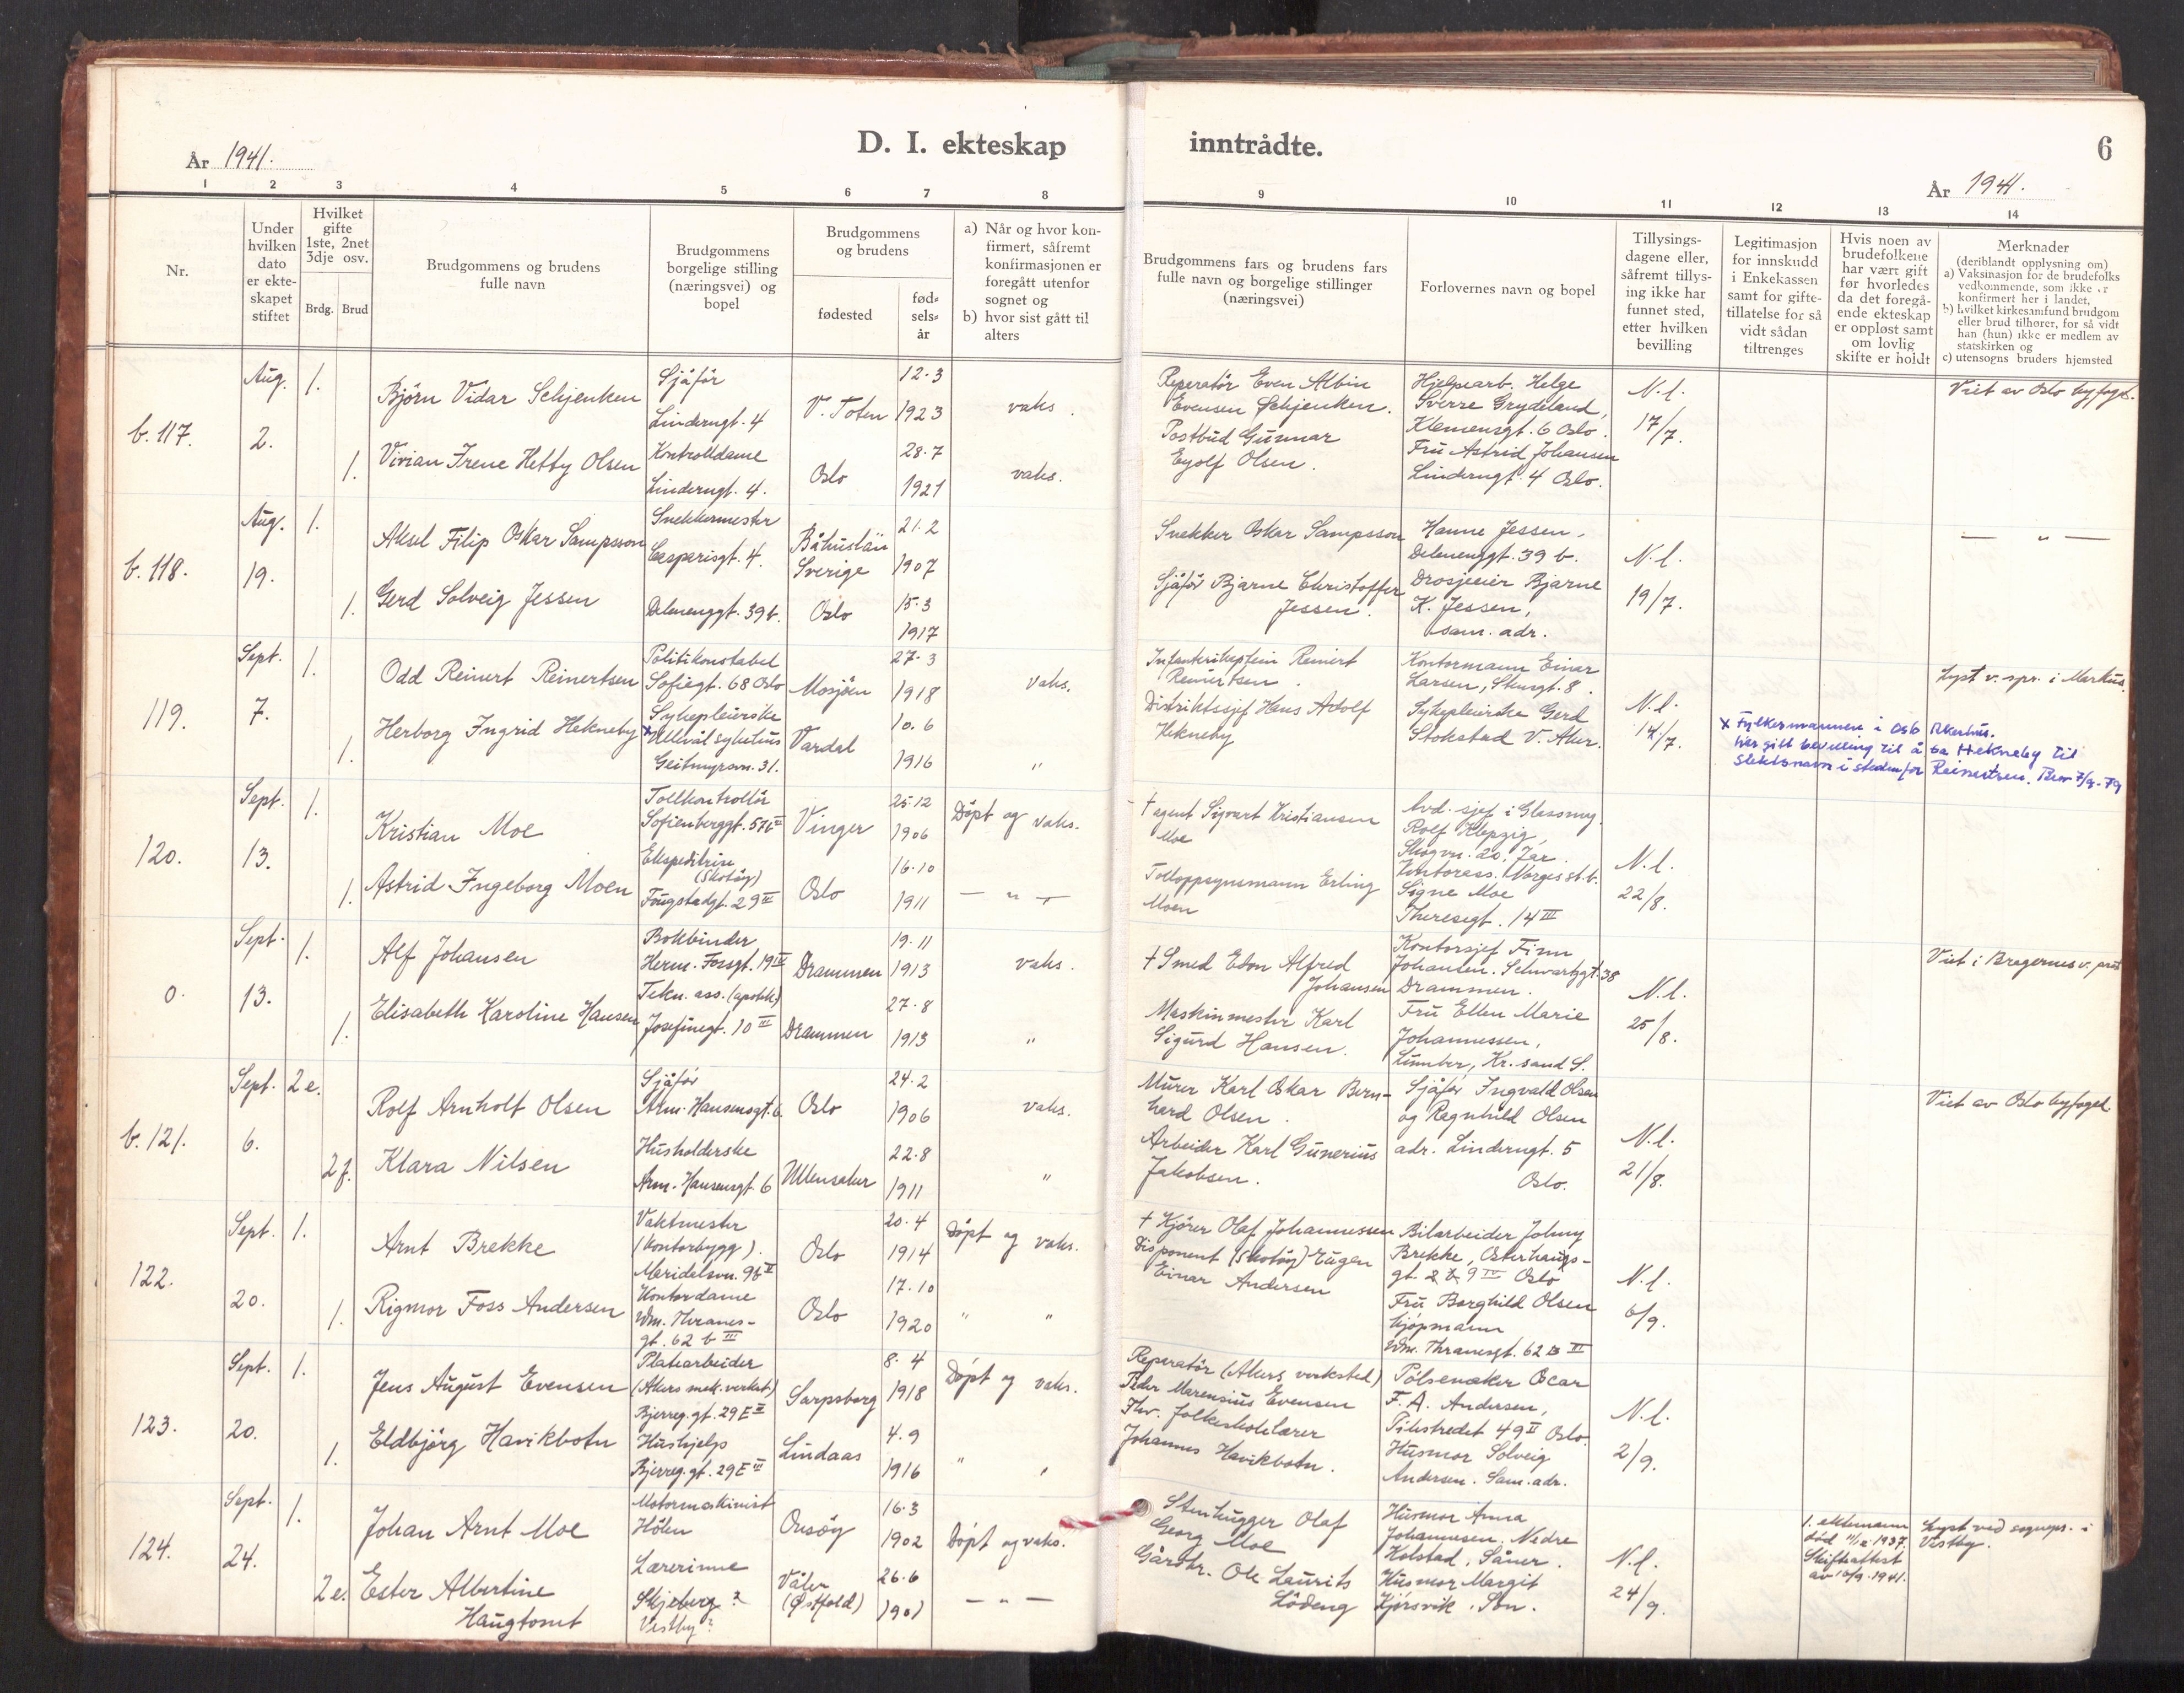 D. I. ekteskap inntrådte.
6
År 1941.
År 1941.
1 2 3 4 5 6 7 8 9 10 11 12 13 14
Nr.
Under hvilken dato er ekteskapet stiftet
Hvilket gifte 1ste, 2net 3dje osv.
Brdg. Brud
Brudgommens og brudens fulle navn
Brudgommens borgelige stilling (næringsvei) og bopel
Brudgommens og brudens
fødested
fødselsår
a) Når og hvor konfirmert, såfremt konfirmasjonen er foregått utenfor sognet og
b) hvor sist gått til alters
Brudgommens fars og brudens fars fulle navn og borgelige stillinger (næringsvei)
Forlovernes navn og bopel
Tillysingsdagene eller, såfremt tillysing ikke har funnet sted, etter hvilken bevilling
Legitimasjon for innskudd i Enkekassen samt for giftetillatelse for så vidt sådan tiltrenges
Hvis noen av brudefolkene har vært gift før hvorledes da det foregående ekteskap er oppløst samt om lovlig skifte er holdt
Merknader
(deriblandt opplysning om)
a) Vaksinasjon for de brudefolks vedkommende, som ikke er konfirmert her i landet,
b) hvilket kirkesamfund brudgom eller brud tilhører, for så vidt han (hun) ikke er medlem av statskirken og
c) utensogns bruders hjemsted
b. 117.
Aug. 2.
1.
Björn Vidar Schjenken
Sjåför
Linderngt. 4
V. Toten
12-3 1923
vaks.
Reperatör Even Albin
Evensen Schjenken.
Hjelpearb. Helge
Sverre Grydeland,
Klemensgt. 6 Oslo.
N.l.
17/7.
Viet av Oslo byfogd.
1.
Vivian Irene Hetty Olsen
Kontrolldame
Linderngt. 4.
Oslo
28-7 1921
vaks.
Postbud Gunnar
Eyolf Olsen.
Fru Astrid Johansen
Linderngt. 4 Oslo.
b. 118.
Aug. 19.
1.
Aksel Filip Oskar Sampsson
Snekkermester
Casparisgt. 4.
Båhuslän
Sverige
21.2 1907
Snekker Oskar Sampsson
Hanne Jessen,
Delenenggt. 39 b.
N.l.
19/7.
— " —
1.
Gerd Solveig Jessen
Delenenggt. 39 b.
Oslo
15-3 1917
Sjåför Bjarne Christoffer
Jessen.
Drosjeeier Bjarne
K. Jessen,
sam. adr.
119.
Sept. 7.
1.
Odd Reinert Reinertsen
Politikonstabel
Sofiegt. 68 Oslo
Mosjöen
27-3 1918
vaks.
Infanterikaptein Reinert
Reinertsen.
Kontormann Einar
Larsen, Stensgt. 8.
N.l.
14/7.
Lyst v. spr. i Markus.
1.
Herborg Ingrid Hekneby
Sykepleierske
x Ullvål sykehus
Geitmyrsvn. 31.
Vardal
10.6 1916
"
Distriktssjef Hans Adolf
Hekneby
Sykepleierske Gerd
Stokstad V. Aker.
x Fylkesmannen i Oslo Akershus.
har gitt bevilling til å ta Hekneby til
slektsnavn i stedenfor Reinertsen. Brev 7/9-79
120.
Sept. 13.
1.
Kristian Moe
Tollkontrollör
Sofienberggt. 57b III
Vinger
25-12 1906
Döpt og vaks.
† agent Sigvart Kristiansen
Moe
Avd. sjef i Glassmag.
Rolf Klepzig,
Skogvn. 20. Jar.
N.l.
22/8.
1.
Astrid Ingeborg Moen
Ekspeditrise
(Skotöy)
Fougstadgt. 29 II
Oslo
16-10 1911
— " —
Tolloppsynsmann Erling
Moen
Kontorass. Norges st.b.
Signe Moe
Theresegt. 14 III
0.
Sept. 13.
1.
Alf Johansen
Bokbinder
Herm. Fossgt. 19 IV
Drammen
19-11 1913
vaks.
† Smed Edon Alfred
Johansen
Kontorsjef Finn
Johansen. Schwartzgt. 38
Drammen.
N.l.
25/8.
Viet i Bragernes v. prest
1.
Elisabeth Karoline Hansen
Tekn. ass. (apotek)
Josefinegt. 10 III
Drammen
27-8 1913
"
Maskinmester Karl
Sigurd Hansen.
Fru Ellen Marie
Johannessen,
Lumber, Kr. sand S.
b. 121.
Sept. 6.
2 e.
Rolf Arnholt Olsen
Sjåför
Arm. Hansensgt. 6
Oslo
24-2 1906
vaks.
Murer Karl Oskar Bernhard Olsen.
Sjåför Ingvald Olsen
og Ragnhild Olsen
adr. Linderngt. 5
Oslo.
N.l.
21/8.
Viet av Oslo byfogd
2 f.
Klara Nilsen
Husholderske
Arm. Hansensgt 6
Ullensaker
22-8 1911
"
Arbeider Karl Gunerius
Jakobsen.
122.
Sept. 20.
1.
Arnt Brekke
Vaktmester
(kontorbygg).
Maridalsvn. 9b II
Oslo
20-4 1914
Döpt og vaks.
† Kjörer Olaf Johannessen
Bilarbeider Johny
Brekke, Osterhaugsgt. 9 IV Oslo
N.l.
6/9.
1.
Rigmor Foss Andersen
Kontordame
Wm. Thranesgt. 62 b III
Oslo
17-10 1920
" "
Disponent (Skotöy) Eugen
Einar Andersen
Fru Borghild Olsen
kjöpmann
Wm. Thranesgt. 62 B III
123.
Sept. 20.
1.
Jens August Evensen
Platearbeider
(Akers mek. verkst)
Bjerreg. gt. 29 E III
Sarpsborg
8-4 1918
Döpt og vaks.
Reperatör (Akers verksted)
Peder Marensius Evensen
Pölsemaker Oscar
F. A. Andersen,
Pilestredet 49 II Oslo.
N.l.
2/9.
1.
Eldbjörg Havikbotn
Hushjelp
Bjerreg. gt. 29 E III
Lindaas
4-9 1916
" "
Fhv. folkeskolelærer
Johannes Havikbotn.
Husmor Solveig
Andersen. Sam. adr.
124.
Sept. 24.
1.
Johan Arnt Moe
Motormaskinist
Hölen
Onsöy
16-3 1902
Döpt og vaks.
Stenhugger Olaf
Georg Moe
Husmor Anna
Johannesen, Nedre
Kolstad, Såner.
N.l.
24/9.
1. ektemann
död 11/12 1937.
Skifteattest
av 10/9. 1941.
Lyst ved sognepr. i
Vestby.
2 e.
Ester Albertine
Haugtomt
Lærerinne
Skjeberg ?
Vestby ?
Våler
(Østfold)
26-6 1901
— " —
Gårdbr. Ole Laurits
Lödeng
Husmor Margit
Kjörsvik, Son.